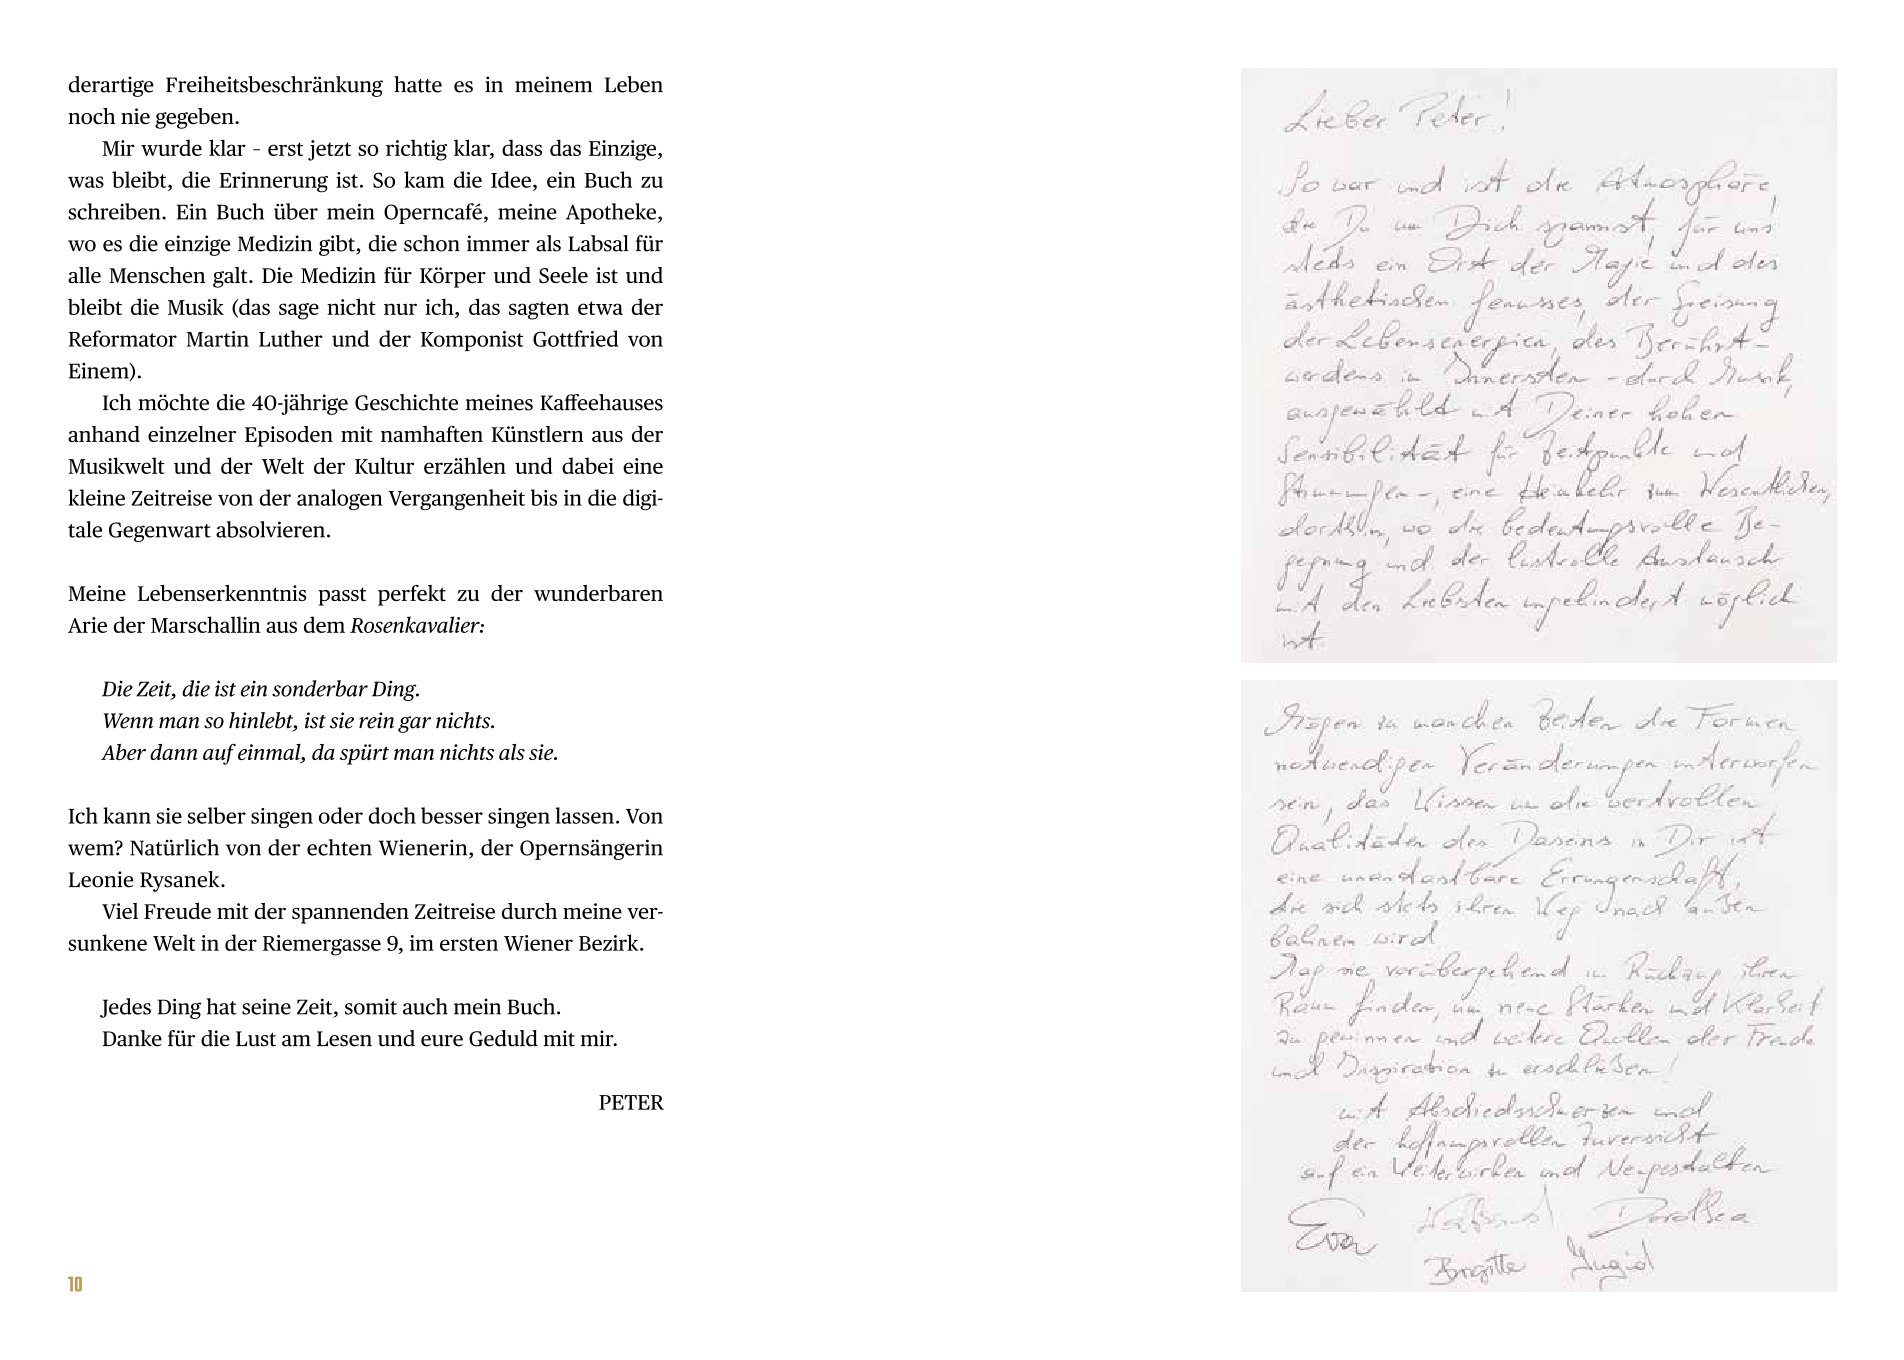 derartige Freiheitsbeschränkung hatte es in meinem Leben
noch nie gegeben.
Mir wurde klar – erst jetzt so richtig klar, dass das Einzige,
was bleibt, die Erinnerung ist. So kam die Idee, ein Buch zu
schreiben. Ein Buch über mein Operncafé, meine Apotheke,
wo es die einzige Medizin gibt, die schon immer als Labsal für
alle Menschen galt. Die Medizin für Körper und Seele ist und
bleibt die Musik (das sage nicht nur ich, das sagten etwa der
Reformator Martin Luther und der Komponist Gottfried von
Einem).
Ich möchte die 40-jährige Geschichte meines Kaffeehauses
anhand einzelner Episoden mit namhaften Künstlern aus der
Musikwelt und der Welt der Kultur erzählen und dabei eine
kleine Zeitreise von der analogen Vergangenheit bis in die digi-
tale Gegenwart absolvieren.
Meine Lebenserkenntnis passt perfekt zu der wunderbaren
Arie der Marschallin aus dem Rosenkavalier:
Die Zeit, die ist ein sonderbar Ding.
Wenn man so hinlebt, ist sie rein gar nichts.
Aber dann auf einmal, da spürt man nichts als sie.
Ich kann sie selber singen oder doch besser singen lassen. Von
wem? Natürlich von der echten Wienerin, der Opernsängerin
Leonie Rysanek.
Viel Freude mit der spannenden Zeitreise durch meine ver-
sunkene Welt in der Riemergasse 9, im ersten Wiener Bezirk.
Jedes Ding hat seine Zeit, somit auch mein Buch.
Danke für die Lust am Lesen und eure Geduld mit mir.
PETER
10
Lieber Peter!
So war und ist die Atmosphäre,
die Du um Dich spannst, für uns
stets ein Ort der Magie und des
ästhetischen Genusses, der Speisung
der Lebensenergien, des Berührt-
werdens im Innersten – durch Musik,
ausgewählt mit Deiner hohen
Sensibilität für Zeitpunkte und
Stimmungen –, eine Heimkehr zum Wesentlichen,
dorthin, wo die bedeutungsvolle Be-
gegnung und der lustvolle Austausch
mit den Liebsten ungehindert möglich
ist.
Mögen zu manchen Zeiten die Formen
notwendigen Veränderungen unterworfen
sein, das Wissen um die wertvollen
Qualitäten des Daseins in Dir ist
eine unantastbare Errungenschaft,
die sich stets ihren Weg nach außen
bahnen wird.
Mag sie vorübergehend im Rückzug ihren
Raum finden, um neue Stärken und Klarheit
zu gewinnen und weitere Quellen der Freude
und Inspiration zu erschließen!
mit Abschiedsschmerzen und
der hoffnungsvollen Zuversicht
auf ein Weiterwirken und Neugestalten
Eva Dorothea
Brigitte Ingrid